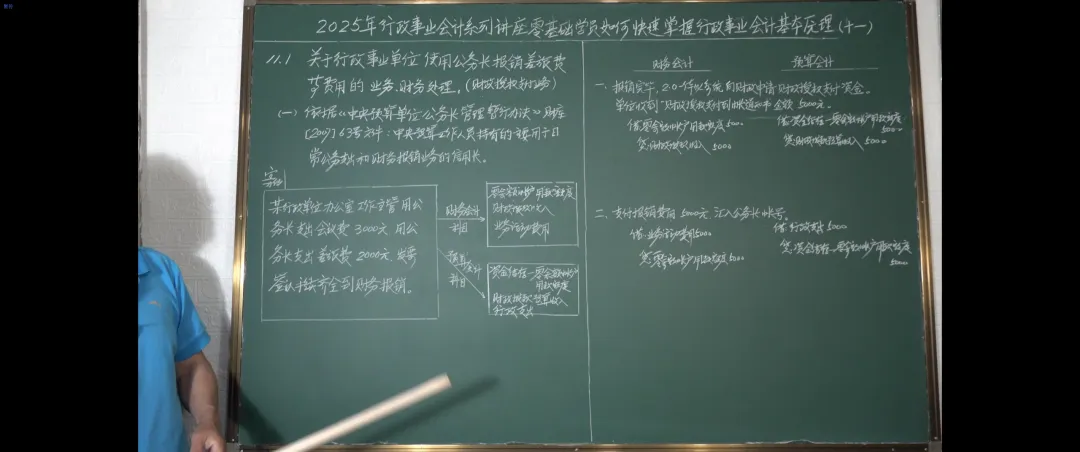 2025年行政事业会计系列讲座零基础学员如何快速掌握行政事业会计基本原理(十一)
11.1 关于行政事业单位使用公务卡报销差旅费
等费用的业务财务处理。(财政授权支付业务)
(一) 依据《中央预算单位公务卡管理暂行办法》财库
[2007]63号文件:中央预算单位工作人员持有的主要用于日
常公务支出和财务报销业务的信用卡。
案例
某行政单位办公室工作主管用公
务卡支出会议费3000元 用公
务卡支出差旅费2000元 发票
签认手续齐全到财务报销。
财务会计
科目
零余额账户用款额度
财政拨款收入
业务活动费用
预算会计
科目
资金结存—零余额账户
用款额度
财政拨款预算收入
行政支出
财务会计
预算会计
单位收到"财政授权支付到账通知书"金额5000元。
借:零余额账户用款额度 5000
贷:财政拨款收入 5000
借:资金结存—零余额账户用款额度
5000
贷:财政拨款预算收入 5000
二、支付报销费用5000元,汇入公务卡账号。
借:业务活动费用 5000
贷:零余额账户用款额度 5000
借:行政支出 5000
贷:资金结存—零余额账户用款额度
5000